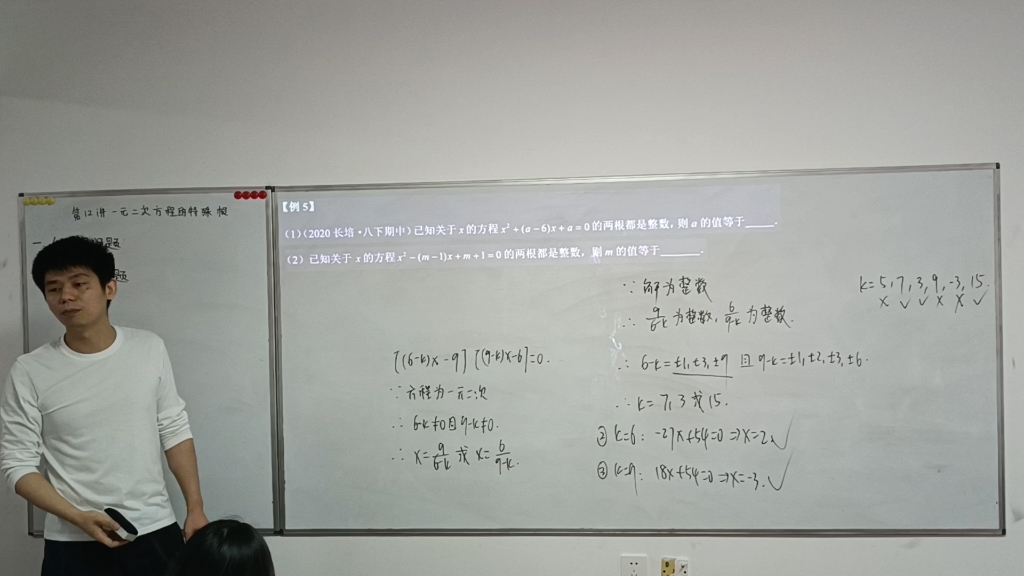 第12讲 一元二次方程的特殊根
一
题
题
【例 5】
(1)(2020 长培·八下期中) 已知关于 x 的方程 x²+(a−6)x+a=0 的两根都是整数,则 a 的值等于_____.
(2) 已知关于 x 的方程 x²−(m−1)x+m+1=0 的两根都是整数,则 m 的值等于_______.
[(6-k)x-9][(9-k)x-6]=0.
∵方程为一元二次
∴ 6-k≠0且9-k≠0.
∴ x=9/6-k 或 x=6/9-k.
∵ 解为整数
∴ 9/6-k 为整数, 6/9-k 为整数.
∴ 6-k=±1,±3,±9 且 9-k=±1,±2,±3,±6.
∴ k=7,3或15.
② k=6: -27x+54=0⇒x=2 ✓
③ k=9: 18x+54=0⇒x=-3. ✓
k=5,7,3,9,-3,15.
× ✓ ✓ × × ✓